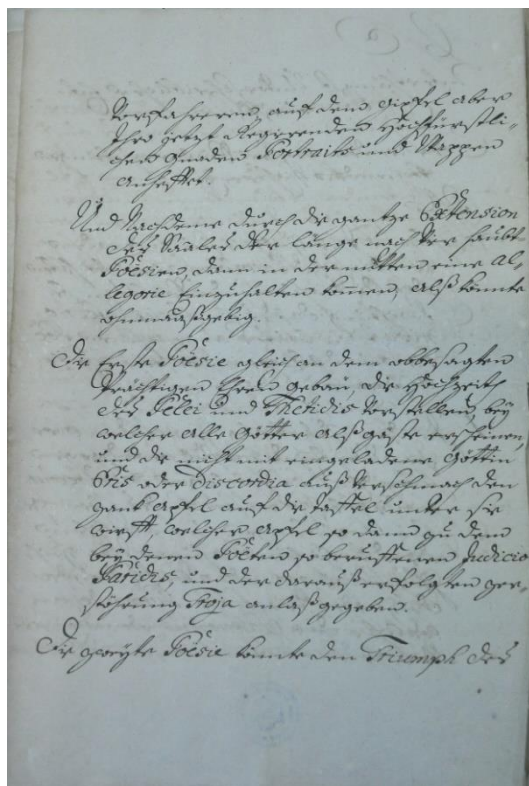 Vorfahreren, auf dem gipfel aber
Ihro jetzt Regirenden Hochfürstli-
chen Gnaden Portraits und Wappen
anhefftet.
Und Nachdeme durch die gantze Extension
des Saales der länge nach vier haubt
Poësien, dann in der mitten eine Al-
legorie Einzuhalten kommen, alß könnte
ohnmaasgebig.
Die Erste Poësie gleich an dem obbesagten
Prächtigen gebäu, die Hochzeith
des Pelei und Thetidis vorstellen, bey
welcher alle götter alß gäste erscheinen,
und die nicht mit eingeladene göttin
Eris oder Discordia auß verschmach den
Zanck apfel auf die taffel unter sie
wirfft, welcher apfel so dann zu dem
bey denen Poëten so beruffenen Judicio
Paridis, und der darauß erfolgten zer-
stöhrung Troja anlaß gegeben.
Die zweyte Poësie könnte den Triumph des